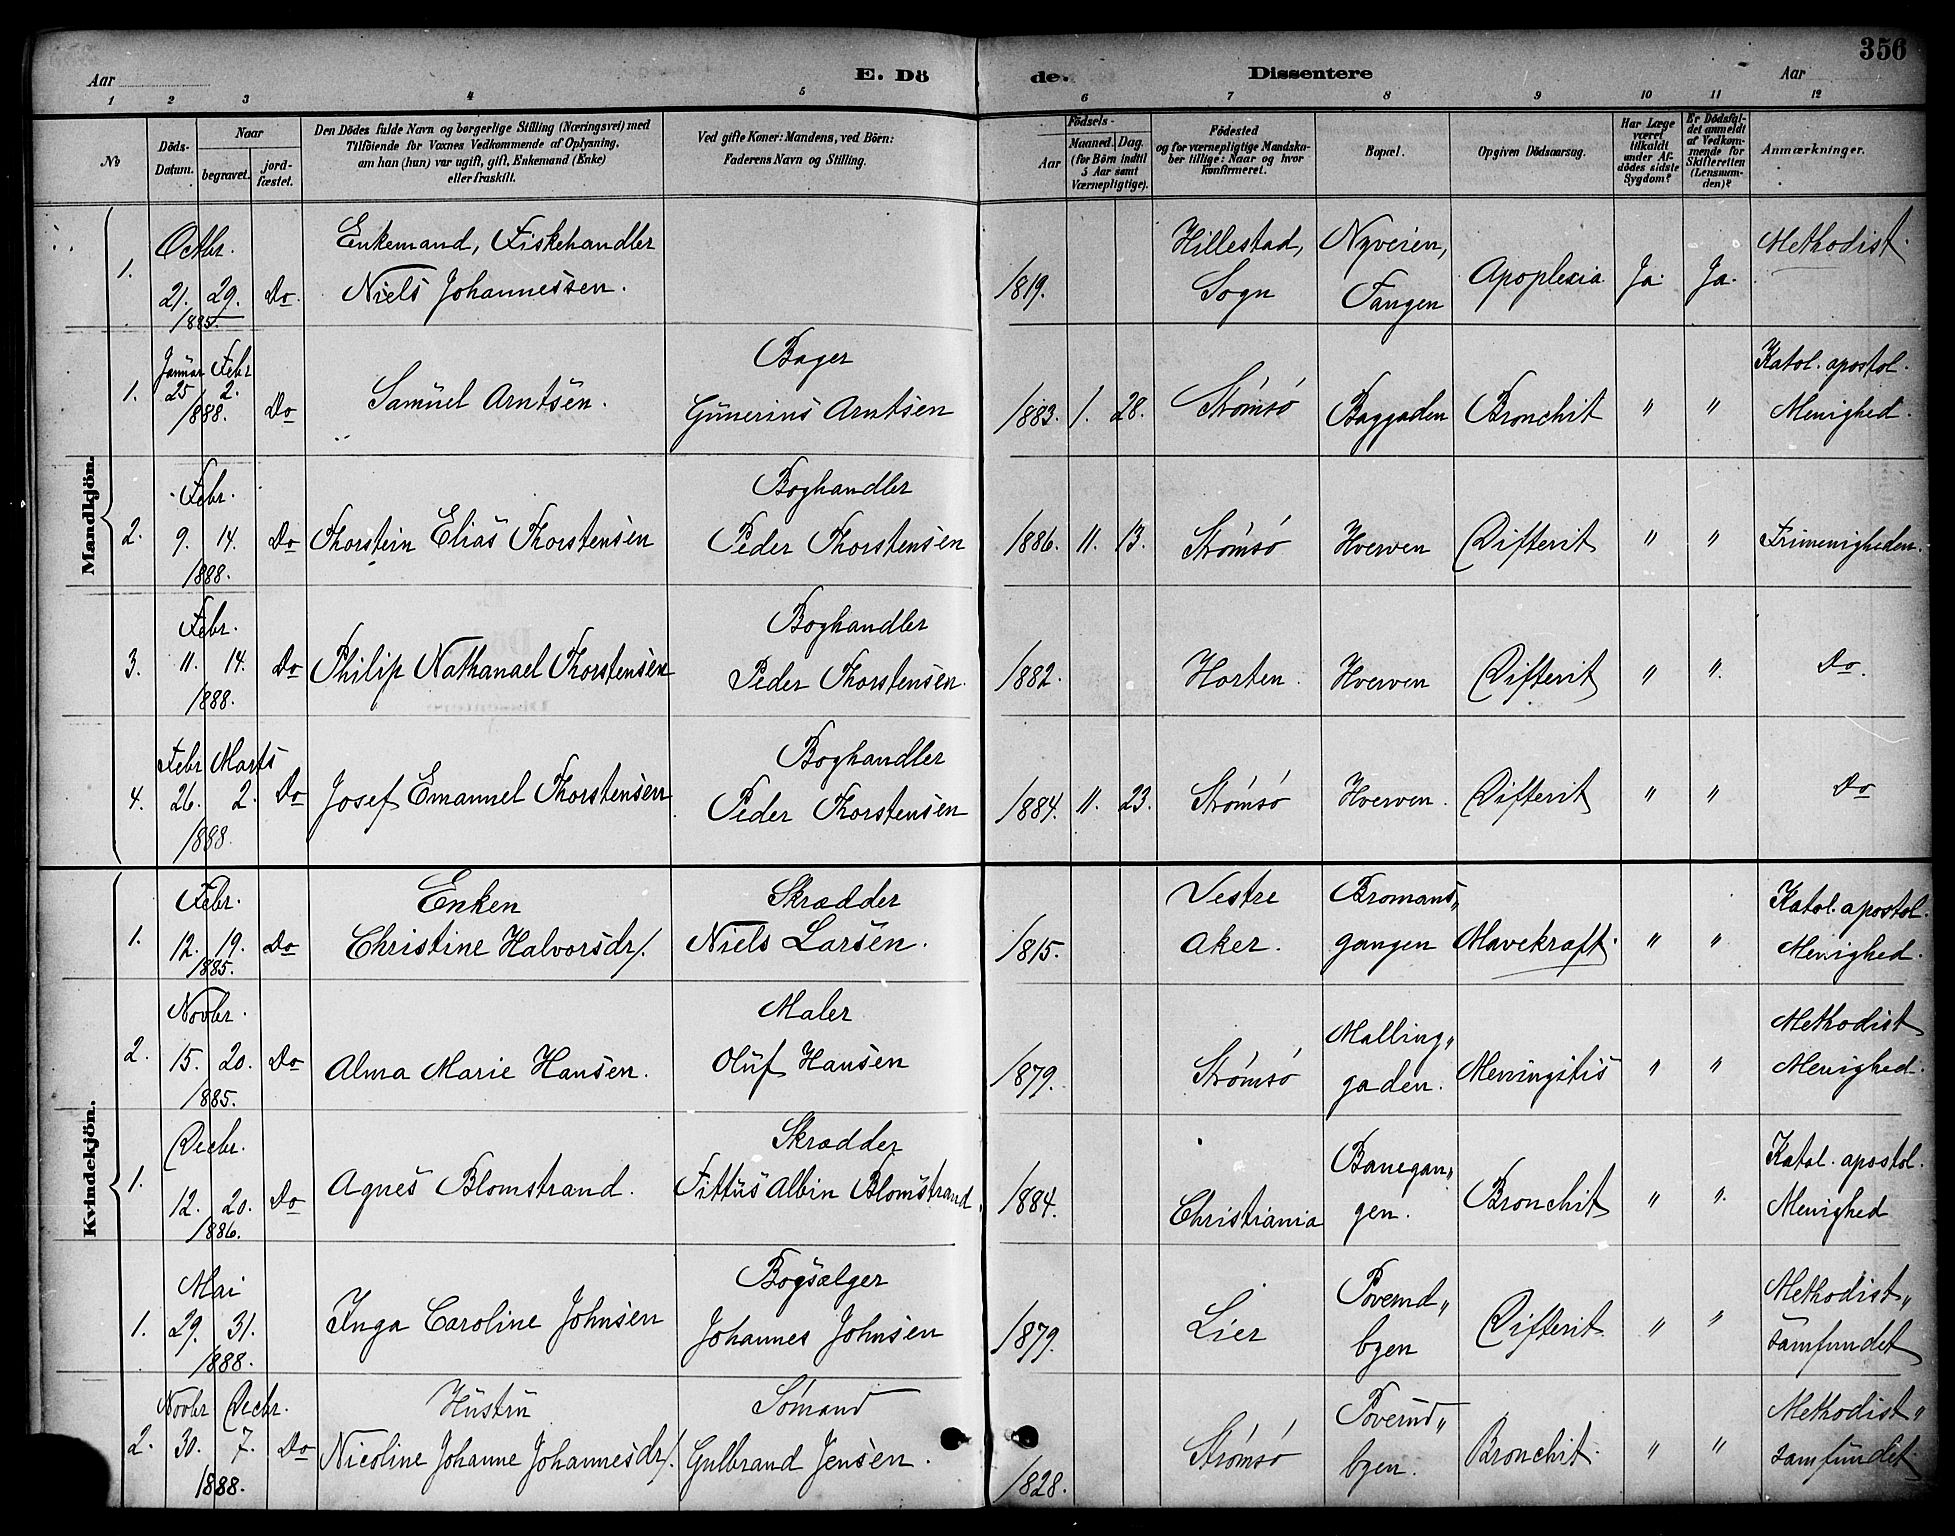 356
Aar E. Dö de. Dissentere Aar
1 2 3 4 5 6 7 8 9 10 11 12
No
Döds-
Datum.
Naar
begravet.
jord-
fæstet.
Den Dödes fulde Navn og borgerlige Stilling (Næringsvei) med
Tilföiende for Voxnes Vedkommende af Oplysning,
om han (hun) var ugift, gift, Enkemand (Enke)
eller fraskilt.
Ved gifte Koner: Mandens, ved Börn:
Faderens Navn og Stilling.
Födsels-
Aar
Maaned. Dag.
(for Börn indtil
5 Aar samt
Værnepligtige).
Födested
og for værnepligtige Mandska-
ber tillige: Naar og hvor
konfirmeret.
Bopæl.
Opgiven Dödsaarsag.
Har Læge
været
tilkaldt
under Af-
dödes sidste
Sygdom?
Er Dödsfal-
det anmeldt
af Vedkom-
mende for
Skifteretten
(Lensman-
den)?
Anmærkninger.
Mandkjön.
Octbr. Enkemand, Fiskehandler Hillestad, Nyveien, Methodist.
1. 21. 29. Do. Niels Johannessen. 1819. Sogn Tangen Apoplexia Ja. Ja.
1885.
Januar Febr Bager Katol. apostol.
1. 25 2. Do Samuel Arntsen. Gunerius Arntsen 1883. 1. 28. Strømsø Baggaden Bronchit " " Menighed.
1888.
Febr. Boghandler
2. 9. 14. Do Thorstein Elias Thorstensen Peder Thorstensen 1886. 11. 13. Strømsø Hverven Difterit " " Frimenigheden.
1888.
Febr. Boghandler
3. 11. 14. Do Philip Nathanael Thorstensen Peder Thorstensen. 1882. Horten. Hverven Difterit " ". Do.
1888.
Febr Marts Boghandler
4. 26. 2. Do Josef Emanuel Thorstensen Peder Thorstensen 1884. 11. 23. Strømsø Hverven. Difterit " " Do
1888.
Kvindekjön.
Febr. Enken Skrædder Vestre Bromans„ Katol. apostol.
1. 12. 19. Do Christine Halvorsdr/. Niels Larsen. 1815. Aker. gangen Mavekræft. " " Menighed.
1885.
Novbr. Maler Malling„ Methodist
2. 15. 20. Do Alma Marie Hansen. Oluf Hansen 1879. Strømsø gaden. Meningitis " " Menighed.
1885.
Decbr. Skrædder Banegan„ Katol. apostol.
1. 12. 20. Do Agnes Blomstrand. Tittus Albin Blomstrand. 1884. Christiania gen. Bronchit " ". Menighed
1886.
Mai Bogsælger Poverud„ Methodist„
1. 29. 31. Inga Caroline Johnsen Johannes Johnsen 1879. Lier byen Difterit " " samfundet
1888.
Novbr Decbr. Hustru Sømand Poverud„ Methodist„
2. 30. 7. Do Nicoline Johanne Johannesdr/. Gulbrand Jensen. 1828. Strømsø byen. Bronchit. " " samfundet
1888.